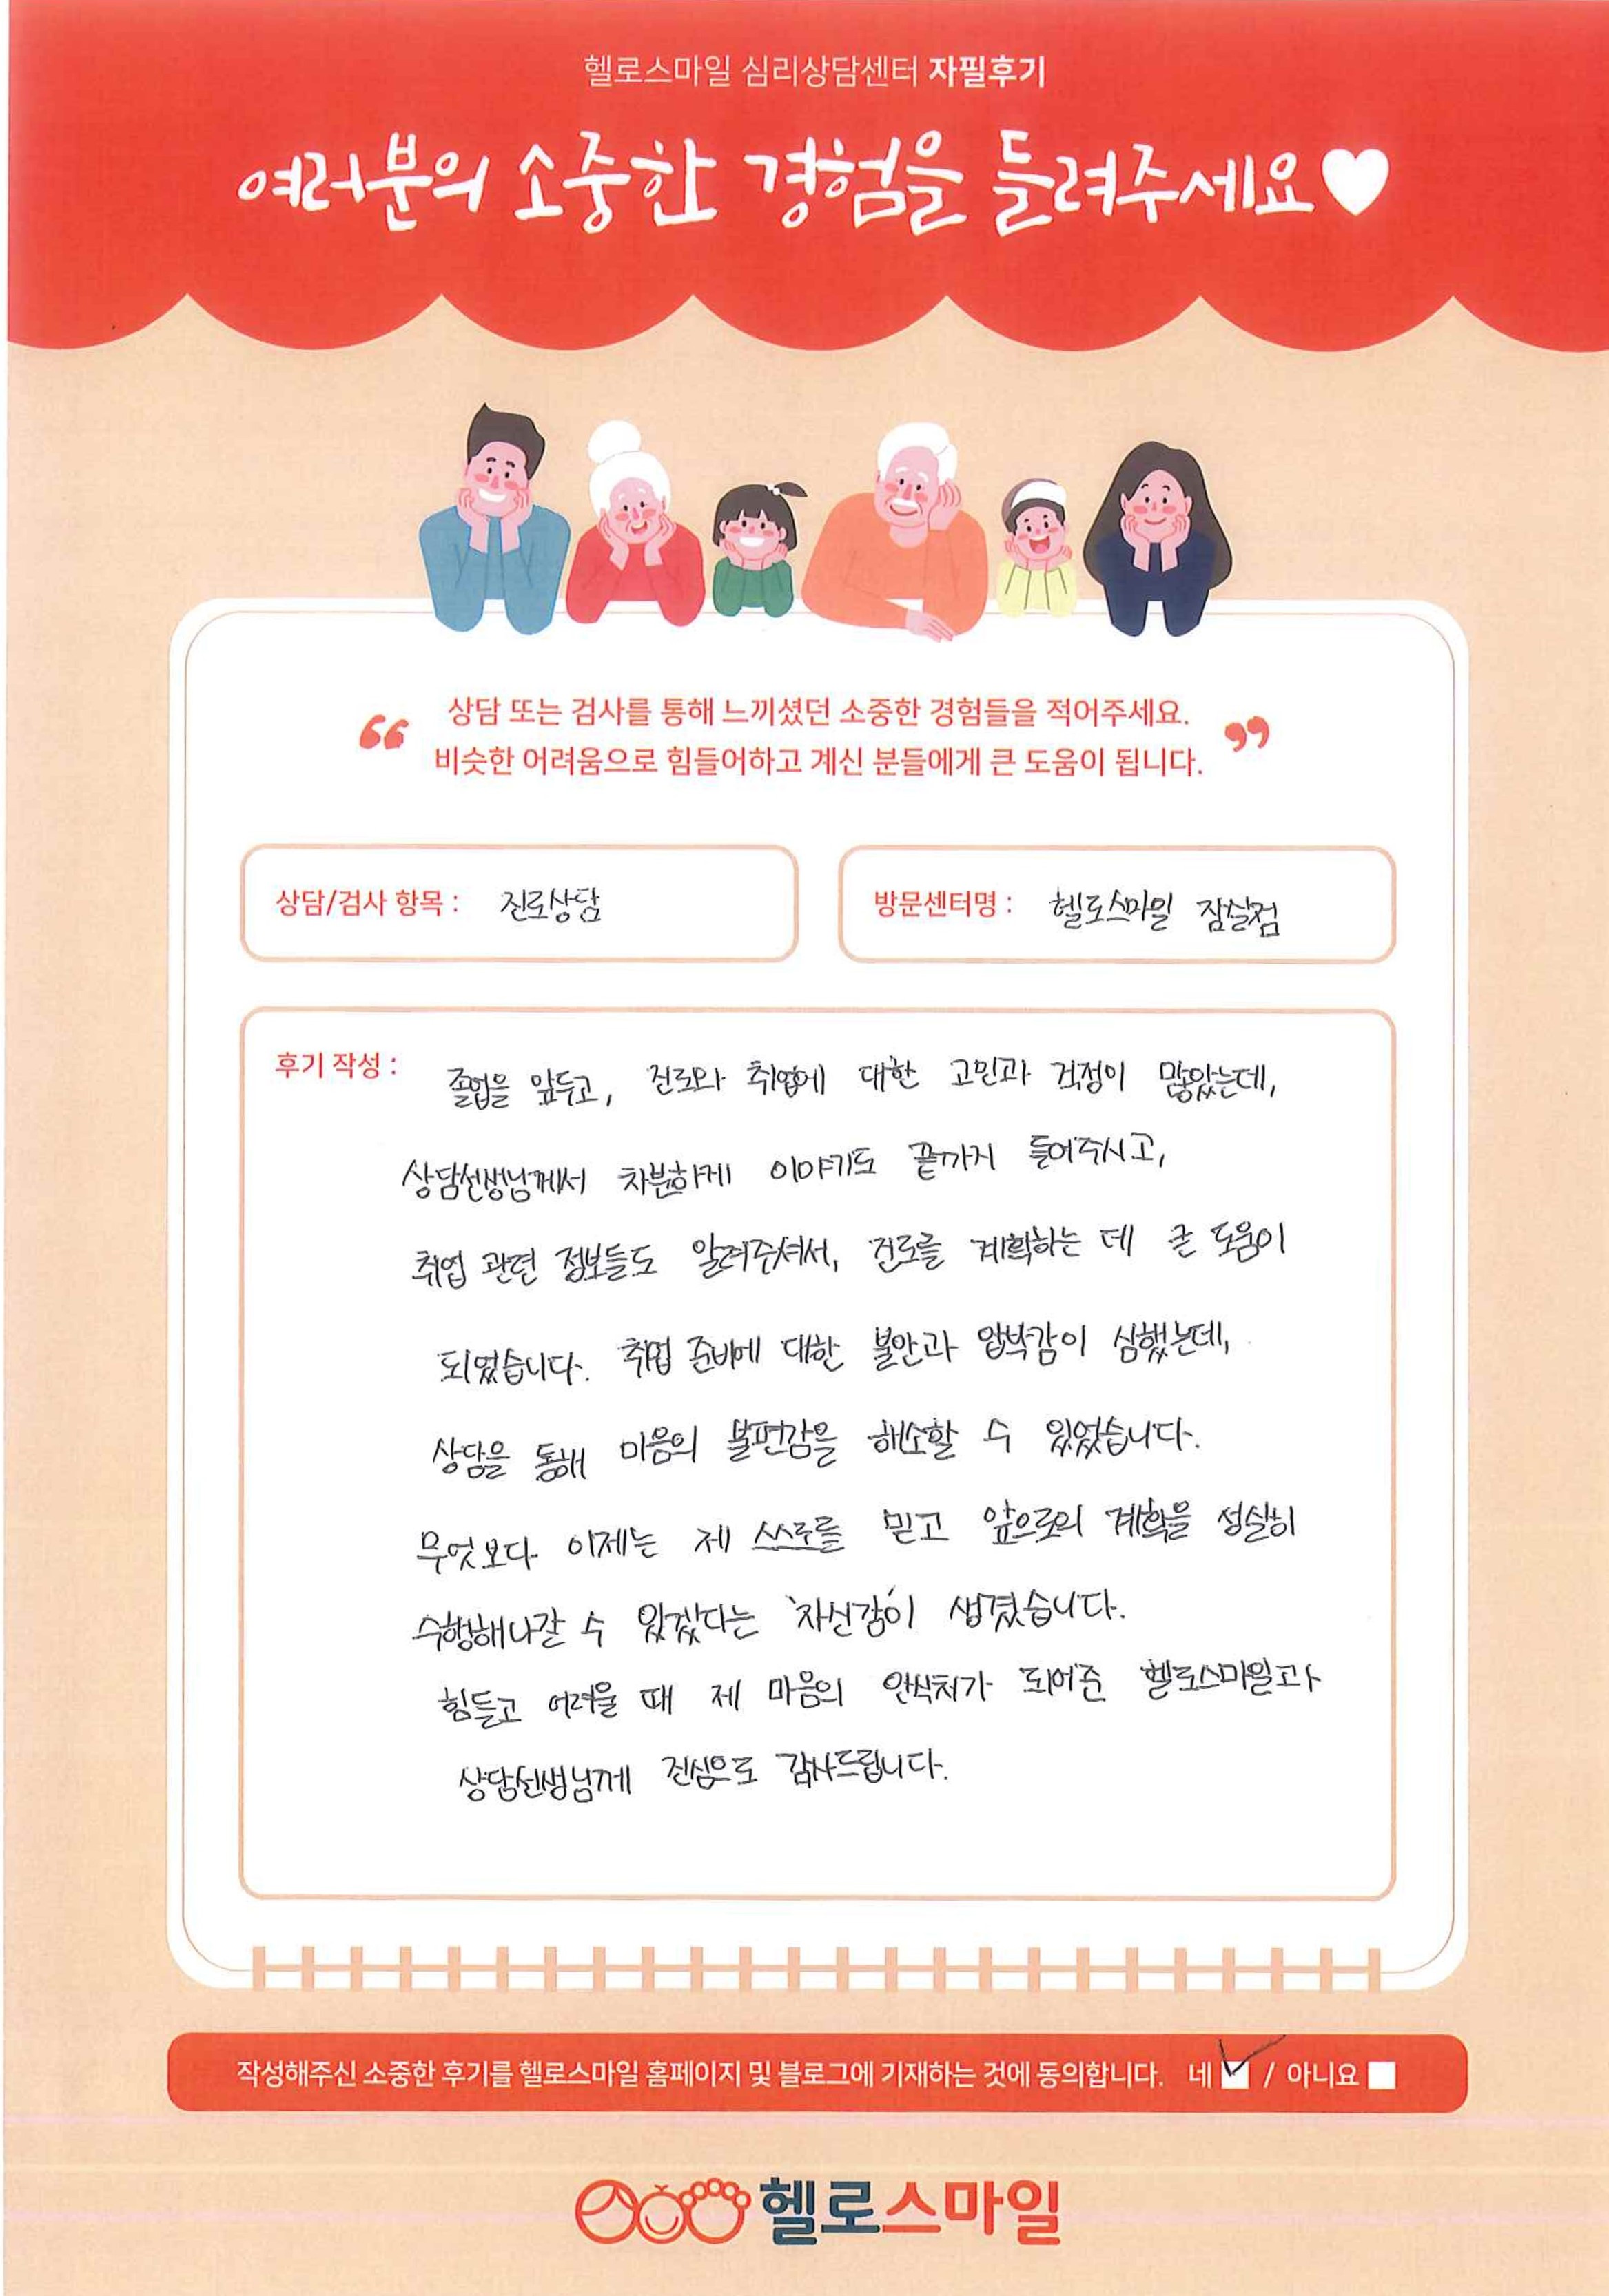 헬로스마일 심리상담센터 자필후기
여러분의 소중한 경험을 들려주세요♥
“ 상담 또는 검사를 통해 느끼셨던 소중한 경험들을 적어주세요.
비슷한 어려움으로 힘들어하고 계신 분들에게 큰 도움이 됩니다. ”
상담/검사 항목 : 진로상담
방문센터명 : 헬로스마일 잠실점
후기 작성 : 졸업을 앞두고, 진로와 취업에 대한 고민과 걱정이 많았는데,
상담선생님께서 차분하게 이야기도 끝까지 들어주시고,
취업 관련 정보들도 알려주셔서, 진로를 계획하는 데 큰 도움이
되었습니다. 취업 준비에 대한 불안과 압박감이 심했는데,
상담을 통해 마음의 불편감을 해소할 수 있었습니다.
무엇보다 이제는 제 스스로를 믿고 앞으로의 계획을 성실히
수행해나갈 수 있겠다는 '자신감'이 생겼습니다.
힘들고 어려울 때 제 마음의 안식처가 되어준 헬로스마일과
상담선생님께 진심으로 감사드립니다.
작성해주신 소중한 후기를 헬로스마일 홈페이지 및 블로그에 기재하는 것에 동의합니다. 네 ☑ / 아니요 ☐
헬로스마일